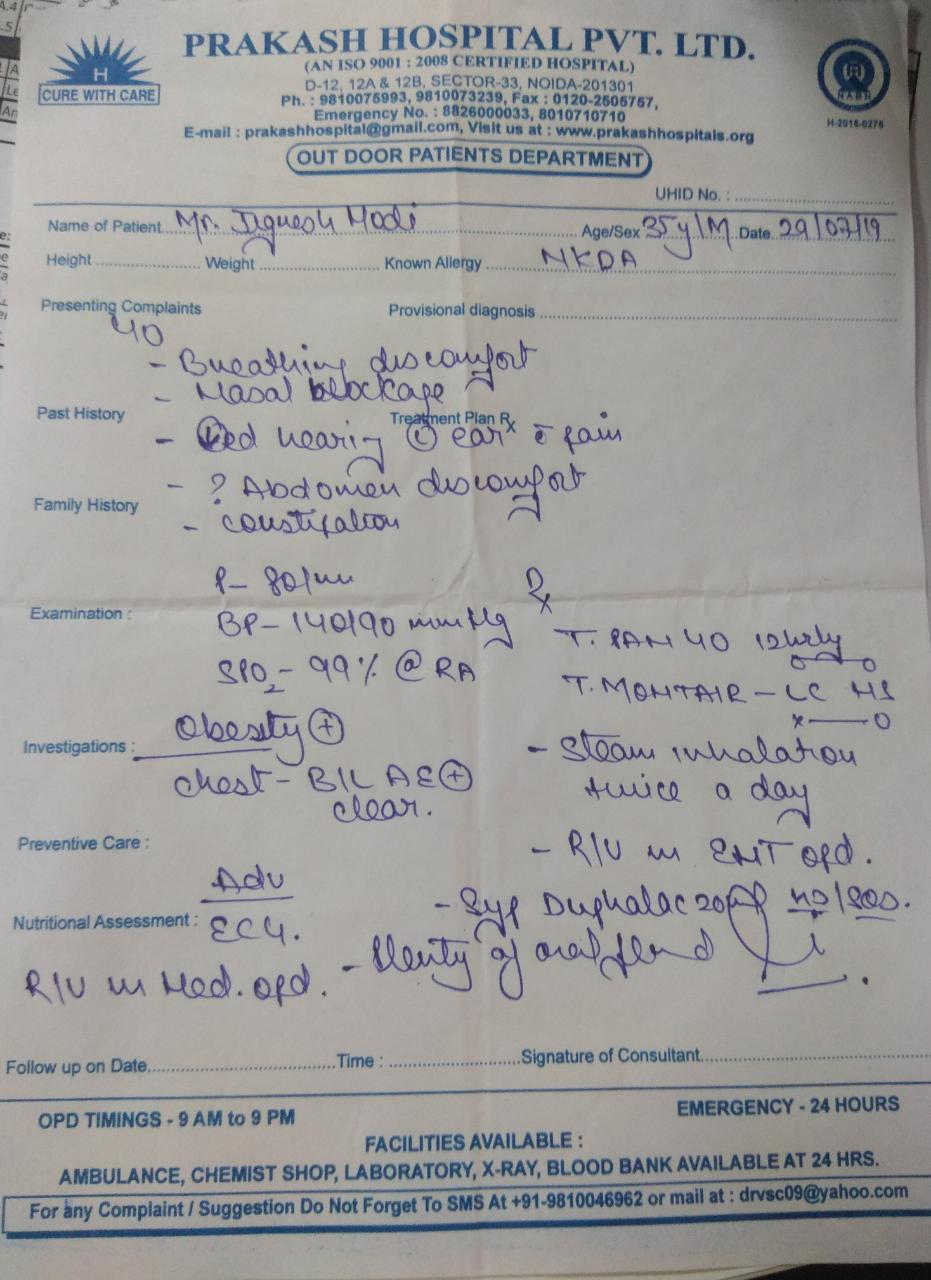 PRAKASH HOSPITAL PVT. LTD.
(AN ISO 9001 : 2008 CERTIFIED HOSPITAL)
H
CURE WITH CARE
D-12, 12A & 12B, SECTOR-33, NOIDA-201301
Ph. : 9810075993, 9810073239, Fax : 0120-2505757,
Emergency No. : 8826000033, 8010710710
E-mail : prakashhospital@gmail.com, Visit us at : www.prakashhospitals.org
NABH
H-2016-0276
OUT DOOR PATIENTS DEPARTMENT
UHID No. :
Name of Patient Mr. Jignesh Modi Age/Sex 35y/M Date 29/07/19
Height Weight Known Allergy NKDA
Presenting Complaints Provisional diagnosis
- Breathing discomfort
- Nasal blockage
Past History Treatment Plan Rx
- ↓ed hearing L ear c̄ pain
- ? Abdomen discomfort
Family History
- constipation
P- 80/mi
Rx
Examination :
BP- 140/90 mmHg
T. PAN 40 12hrly
SPO2 - 99% @ RA
T. MONTAIR - LC HS
Obesity +
x—o
Investigations :
- Steam inhalation
twice a day
Chest - B/L AE +
clear.
Preventive Care :
- R/V in ENT opd.
Adv
- Syp Duphalac 20ml HS/SOS.
Nutritional Assessment :
ECG.
- Plenty of oral fluid
R/V in Med. opd.
Follow up on Date Time : Signature of Consultant
OPD TIMINGS - 9 AM to 9 PM EMERGENCY - 24 HOURS
FACILITIES AVAILABLE :
AMBULANCE, CHEMIST SHOP, LABORATORY, X-RAY, BLOOD BANK AVAILABLE AT 24 HRS.
For any Complaint / Suggestion Do Not Forget To SMS At +91-9810046962 or mail at : drvsc09@yahoo.com